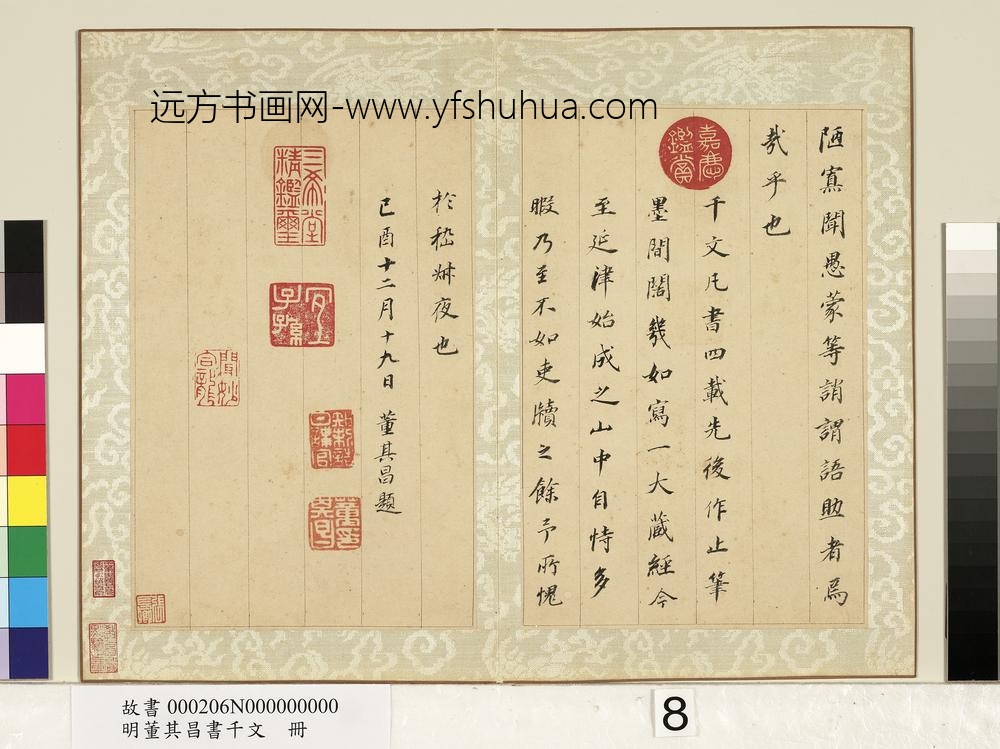 远方书画网-www.yfshuhua.com
陋寡聞愚蒙等誚謂語助者焉
哉乎也
千文凡書四載先後作止筆
墨間闊幾如寫一大藏經今
至延津始成之山中自恃多
暇乃至不如吏牘之餘予所愧
於嵇
夜也
己酉十二月十九日 董其昌題
嘉慶鑑賞
三希堂精鑑璽
宜子孫
董其昌印
故書 000206N000000000
明董其昌書千文 冊
8